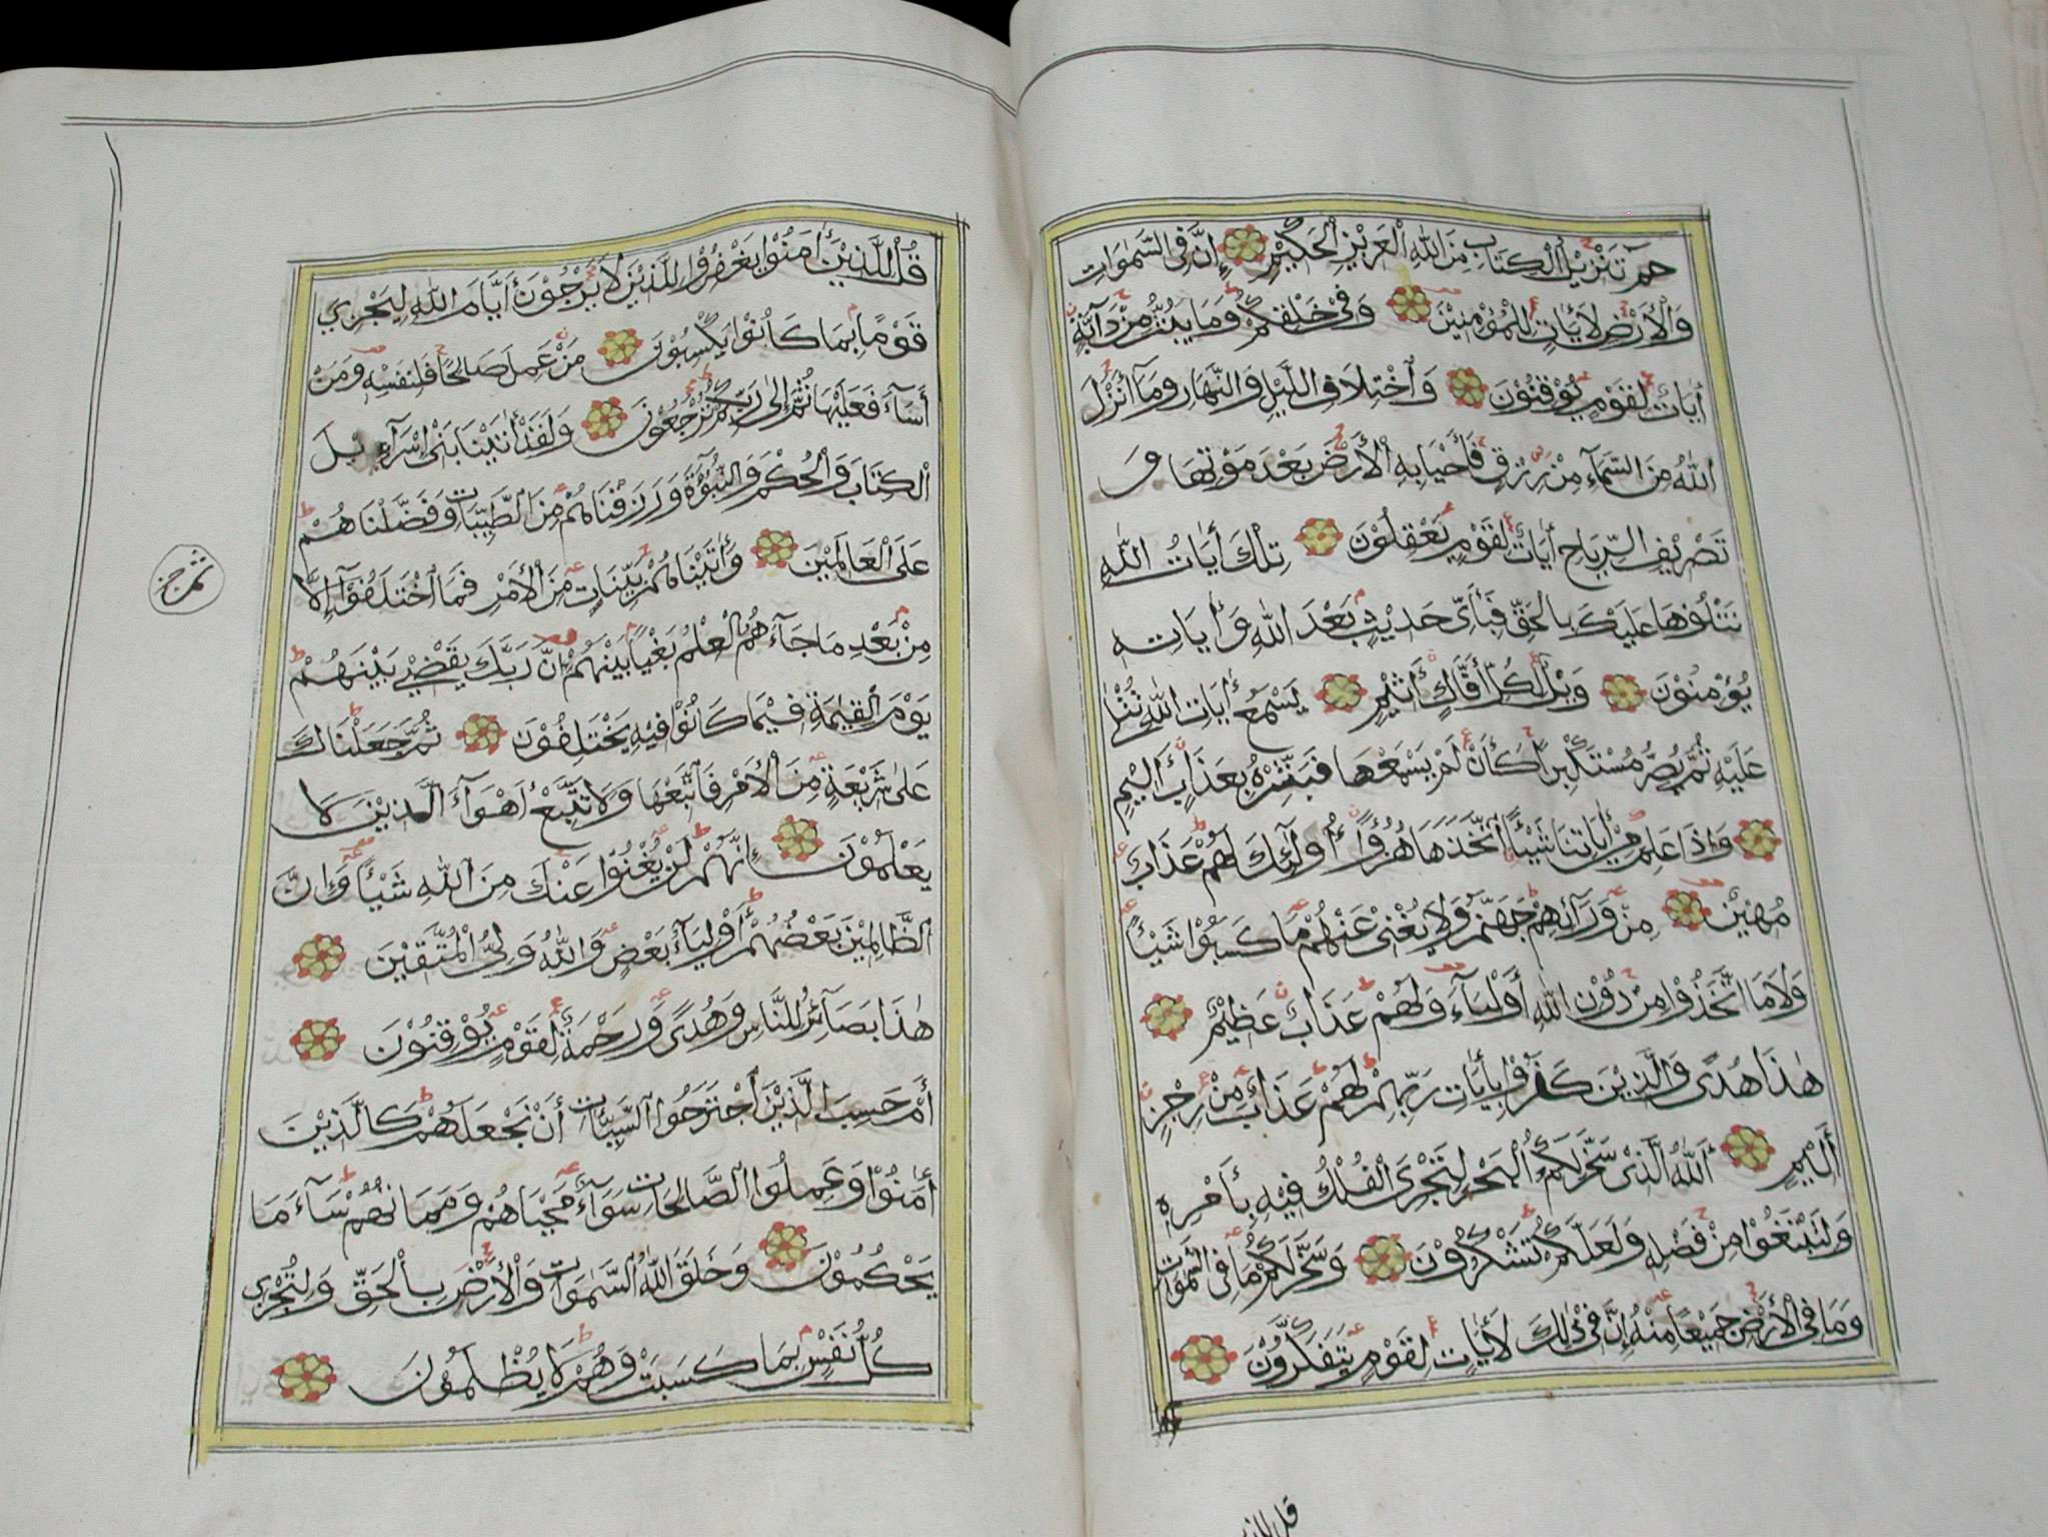 حٰمٓ تَنْزِيْلُ الْكِتَابِ مِنَ اللّٰهِ الْعَزِيْزِ الْحَكِيْمِ إِنَّ فِى السَّمٰوَاتِ
وَالْأَرْضِ لَأٰيَاتٍ لِلْمُؤْمِنِيْنَ وَفِىْ خَلْقِكُمْ وَمَا يَبُثُّ مِنْ دَآبَّةٍ
أٰيَاتٌ لِقَوْمٍ يُوْقِنُوْنَ وَاخْتِلَافِ اللَّيْلِ وَالنَّهَارِ وَمَآ أَنْزَلَ
اللّٰهُ مِنَ السَّمَآءِ مِنْ رِزْقٍ فَأَحْيَا بِهِ الْأَرْضَ بَعْدَ مَوْتِهَا وَ
تَصْرِيْفِ الرِّيَاحِ أٰيَاتٌ لِقَوْمٍ يَعْقِلُوْنَ تِلْكَ أٰيَاتُ اللّٰهِ
نَتْلُوْهَا عَلَيْكَ بِالْحَقِّ فَبِأَىِّ حَدِيْثٍ بَعْدَ اللّٰهِ وَأٰيَاتِهِ
يُؤْمِنُوْنَ وَيْلٌ لِكُلِّ أَفَّاكٍ أَثِيْمٍ يَسْمَعُ أٰيَاتِ اللّٰهِ تُتْلٰى
عَلَيْهِ ثُمَّ يُصِرُّ مُسْتَكْبِرًا كَأَنْ لَمْ يَسْمَعْهَا فَبَشِّرْهُ بِعَذَابٍ أَلِيْمٍ
وَإِذَا عَلِمَ مِنْ أٰيَاتِنَا شَيْئًا اتَّخَذَهَا هُزُوًا أُولٰٓئِكَ لَهُمْ عَذَابٌ
مُهِيْنٌ مِنْ وَرَآئِهِمْ جَهَنَّمُ وَلَا يُغْنِىْ عَنْهُمْ مَا كَسَبُوْا شَيْئًا
وَلَا مَا اتَّخَذُوْا مِنْ دُوْنِ اللّٰهِ أَوْلِيَآءَ وَلَهُمْ عَذَابٌ عَظِيْمٌ
هٰذَا هُدًى وَالَّذِيْنَ كَفَرُوْا بِأٰيَاتِ رَبِّهِمْ لَهُمْ عَذَابٌ مِنْ رِجْزٍ
أَلِيْمٍ أَللّٰهُ الَّذِىْ سَخَّرَ لَكُمُ الْبَحْرَ لِتَجْرِىَ الْفُلْكُ فِيْهِ بِأَمْرِهِ
وَلِتَبْتَغُوْا مِنْ فَضْلِهِ وَلَعَلَّكُمْ تَشْكُرُوْنَ وَسَخَّرَ لَكُمْ مَا فِى السَّمٰوَاتِ
وَمَا فِى الْأَرْضِ جَمِيْعًا مِنْهُ إِنَّ فِىْ ذٰلِكَ لَأٰيَاتٍ لِقَوْمٍ يَتَفَكَّرُوْنَ
قل للذين
قُلْ لِلَّذِيْنَ أٰمَنُوْا يَغْفِرُوْا لِلَّذِيْنَ لَا يَرْجُوْنَ أَيَّامَ اللّٰهِ لِيَجْزِىَ
قَوْمًا بِمَا كَانُوْا يَكْسِبُوْنَ مَنْ عَمِلَ صَالِحًا فَلِنَفْسِهِ وَمَنْ
أَسَآءَ فَعَلَيْهَا ثُمَّ إِلٰى رَبِّكُمْ تُرْجَعُوْنَ وَلَقَدْ أٰتَيْنَا بَنِىْ إِسْرَآءِيْلَ
الْكِتَابَ وَالْحُكْمَ وَالنُّبُوَّةَ وَرَزَقْنَاهُمْ مِنَ الطَّيِّبَاتِ وَفَضَّلْنَاهُمْ
عَلَى الْعَالَمِيْنَ وَأٰتَيْنَاهُمْ بَيِّنَاتٍ مِنَ الْأَمْرِ فَمَا اخْتَلَفُوْآ إِلَّا
مِنْ بَعْدِ مَا جَآءَهُمُ الْعِلْمُ بَغْيًا بَيْنَهُمْ إِنَّ رَبَّكَ يَقْضِىْ بَيْنَهُمْ
يَوْمَ الْقِيٰمَةِ فِيْمَا كَانُوْا فِيْهِ يَخْتَلِفُوْنَ ثُمَّ جَعَلْنَاكَ
عَلٰى شَرِيْعَةٍ مِنَ الْأَمْرِ فَاتَّبِعْهَا وَلَا تَتَّبِعْ أَهْوَآءَ الَّذِيْنَ لَا
يَعْلَمُوْنَ إِنَّهُمْ لَنْ يُغْنُوْا عَنْكَ مِنَ اللّٰهِ شَيْئًا وَإِنَّ
الظَّالِمِيْنَ بَعْضُهُمْ أَوْلِيَآءُ بَعْضٍ وَاللّٰهُ وَلِىُّ الْمُتَّقِيْنَ
هٰذَا بَصَآئِرُ لِلنَّاسِ وَهُدًى وَرَحْمَةٌ لِقَوْمٍ يُوْقِنُوْنَ
أَمْ حَسِبَ الَّذِيْنَ اجْتَرَحُوا السَّيِّئَاتِ أَنْ نَجْعَلَهُمْ كَالَّذِيْنَ
أٰمَنُوْا وَعَمِلُوا الصَّالِحَاتِ سَوَآءً مَحْيَاهُمْ وَمَمَاتُهُمْ سَآءَ مَا
يَحْكُمُوْنَ وَخَلَقَ اللّٰهُ السَّمٰوَاتِ وَالْأَرْضَ بِالْحَقِّ وَلِتُجْزٰى
كُلُّ نَفْسٍ بِمَا كَسَبَتْ وَهُمْ لَا يُظْلَمُوْنَ